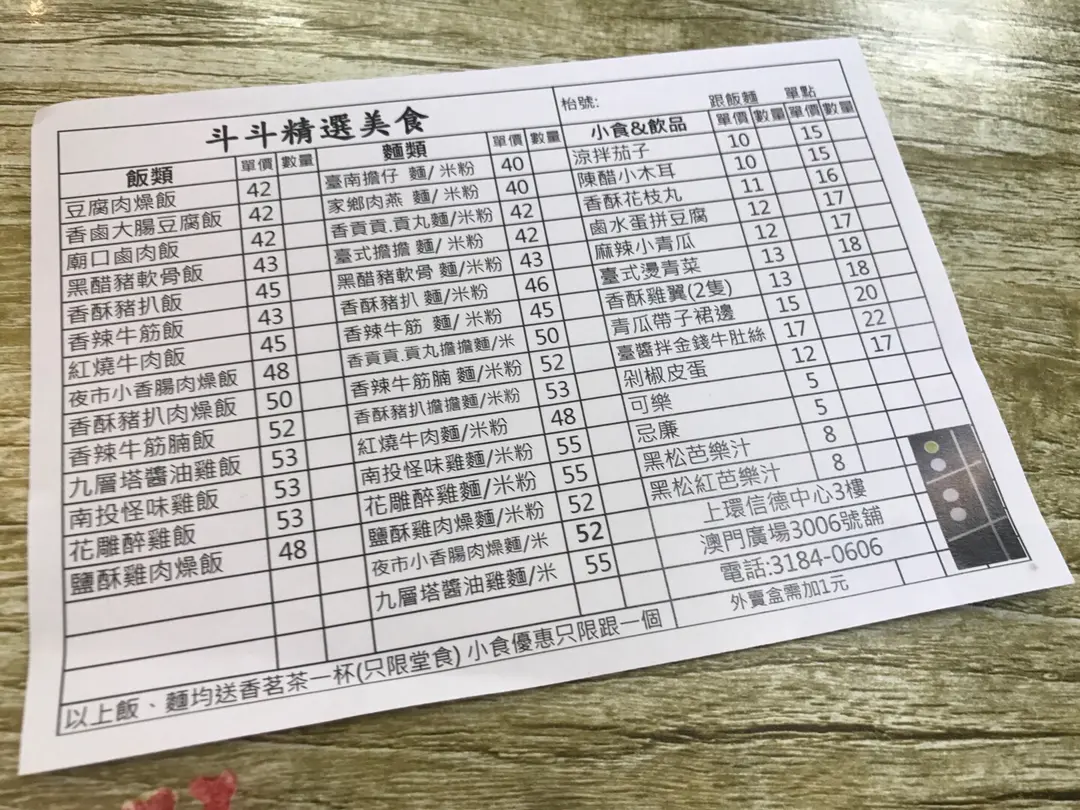 斗斗精選美食
飯類 單價 數量
豆腐肉燥飯 42
香鹵大腸豆腐飯 42
廟口鹵肉飯 42
黑醋豬軟骨飯 43
香酥豬扒飯 45
香辣牛筋飯 43
紅燒牛肉飯 45
夜市小香腸肉燥飯 48
香酥豬扒肉燥飯 50
香辣牛筋腩飯 52
九層塔醬油雞飯 53
南投怪味雞飯 53
花雕醉雞飯 53
鹽酥雞肉燥飯 48
麵類 單價 數量
臺南擔仔 麵/ 米粉 40
家鄉肉燕 麵/ 米粉 40
香貢貢.貢丸麵/米粉 42
臺式擔擔 麵/ 米粉 42
黑醋豬軟骨 麵/米粉 43
香酥豬扒 麵/米粉 46
香辣牛筋 麵/ 米粉 45
香貢貢.貢丸擔擔麵/米 50
香辣牛筋腩 麵/米粉 52
香酥豬扒擔擔麵/米粉 53
紅燒牛肉麵/米粉 48
南投怪味雞麵/米粉 55
花雕醉雞麵/米粉 55
鹽酥雞肉燥麵/米粉 52
夜市小香腸肉燥麵/米 52
九層塔醬油雞麵/米 55
枱號: 跟飯麵 單點
小食&飲品 單價 數量 單價 數量
涼拌茄子 10 15
陳醋小木耳 10 15
香酥花枝丸 11 16
鹵水蛋拼豆腐 12 17
麻辣小青瓜 12 17
臺式燙青菜 13 18
香酥雞翼(2隻) 13 18
青瓜帶子裙邊 15 20
臺醬拌金錢牛肚絲 17 22
剁椒皮蛋 12 17
可樂 5
忌廉 5
黑松芭樂汁 8
黑松紅芭樂汁 8
上環信德中心3樓
澳門廣場3006號舖
電話:3184-0606
外賣盒需加1元
以上飯、麵均送香茗茶一杯(只限堂食) 小食優惠只限跟一個